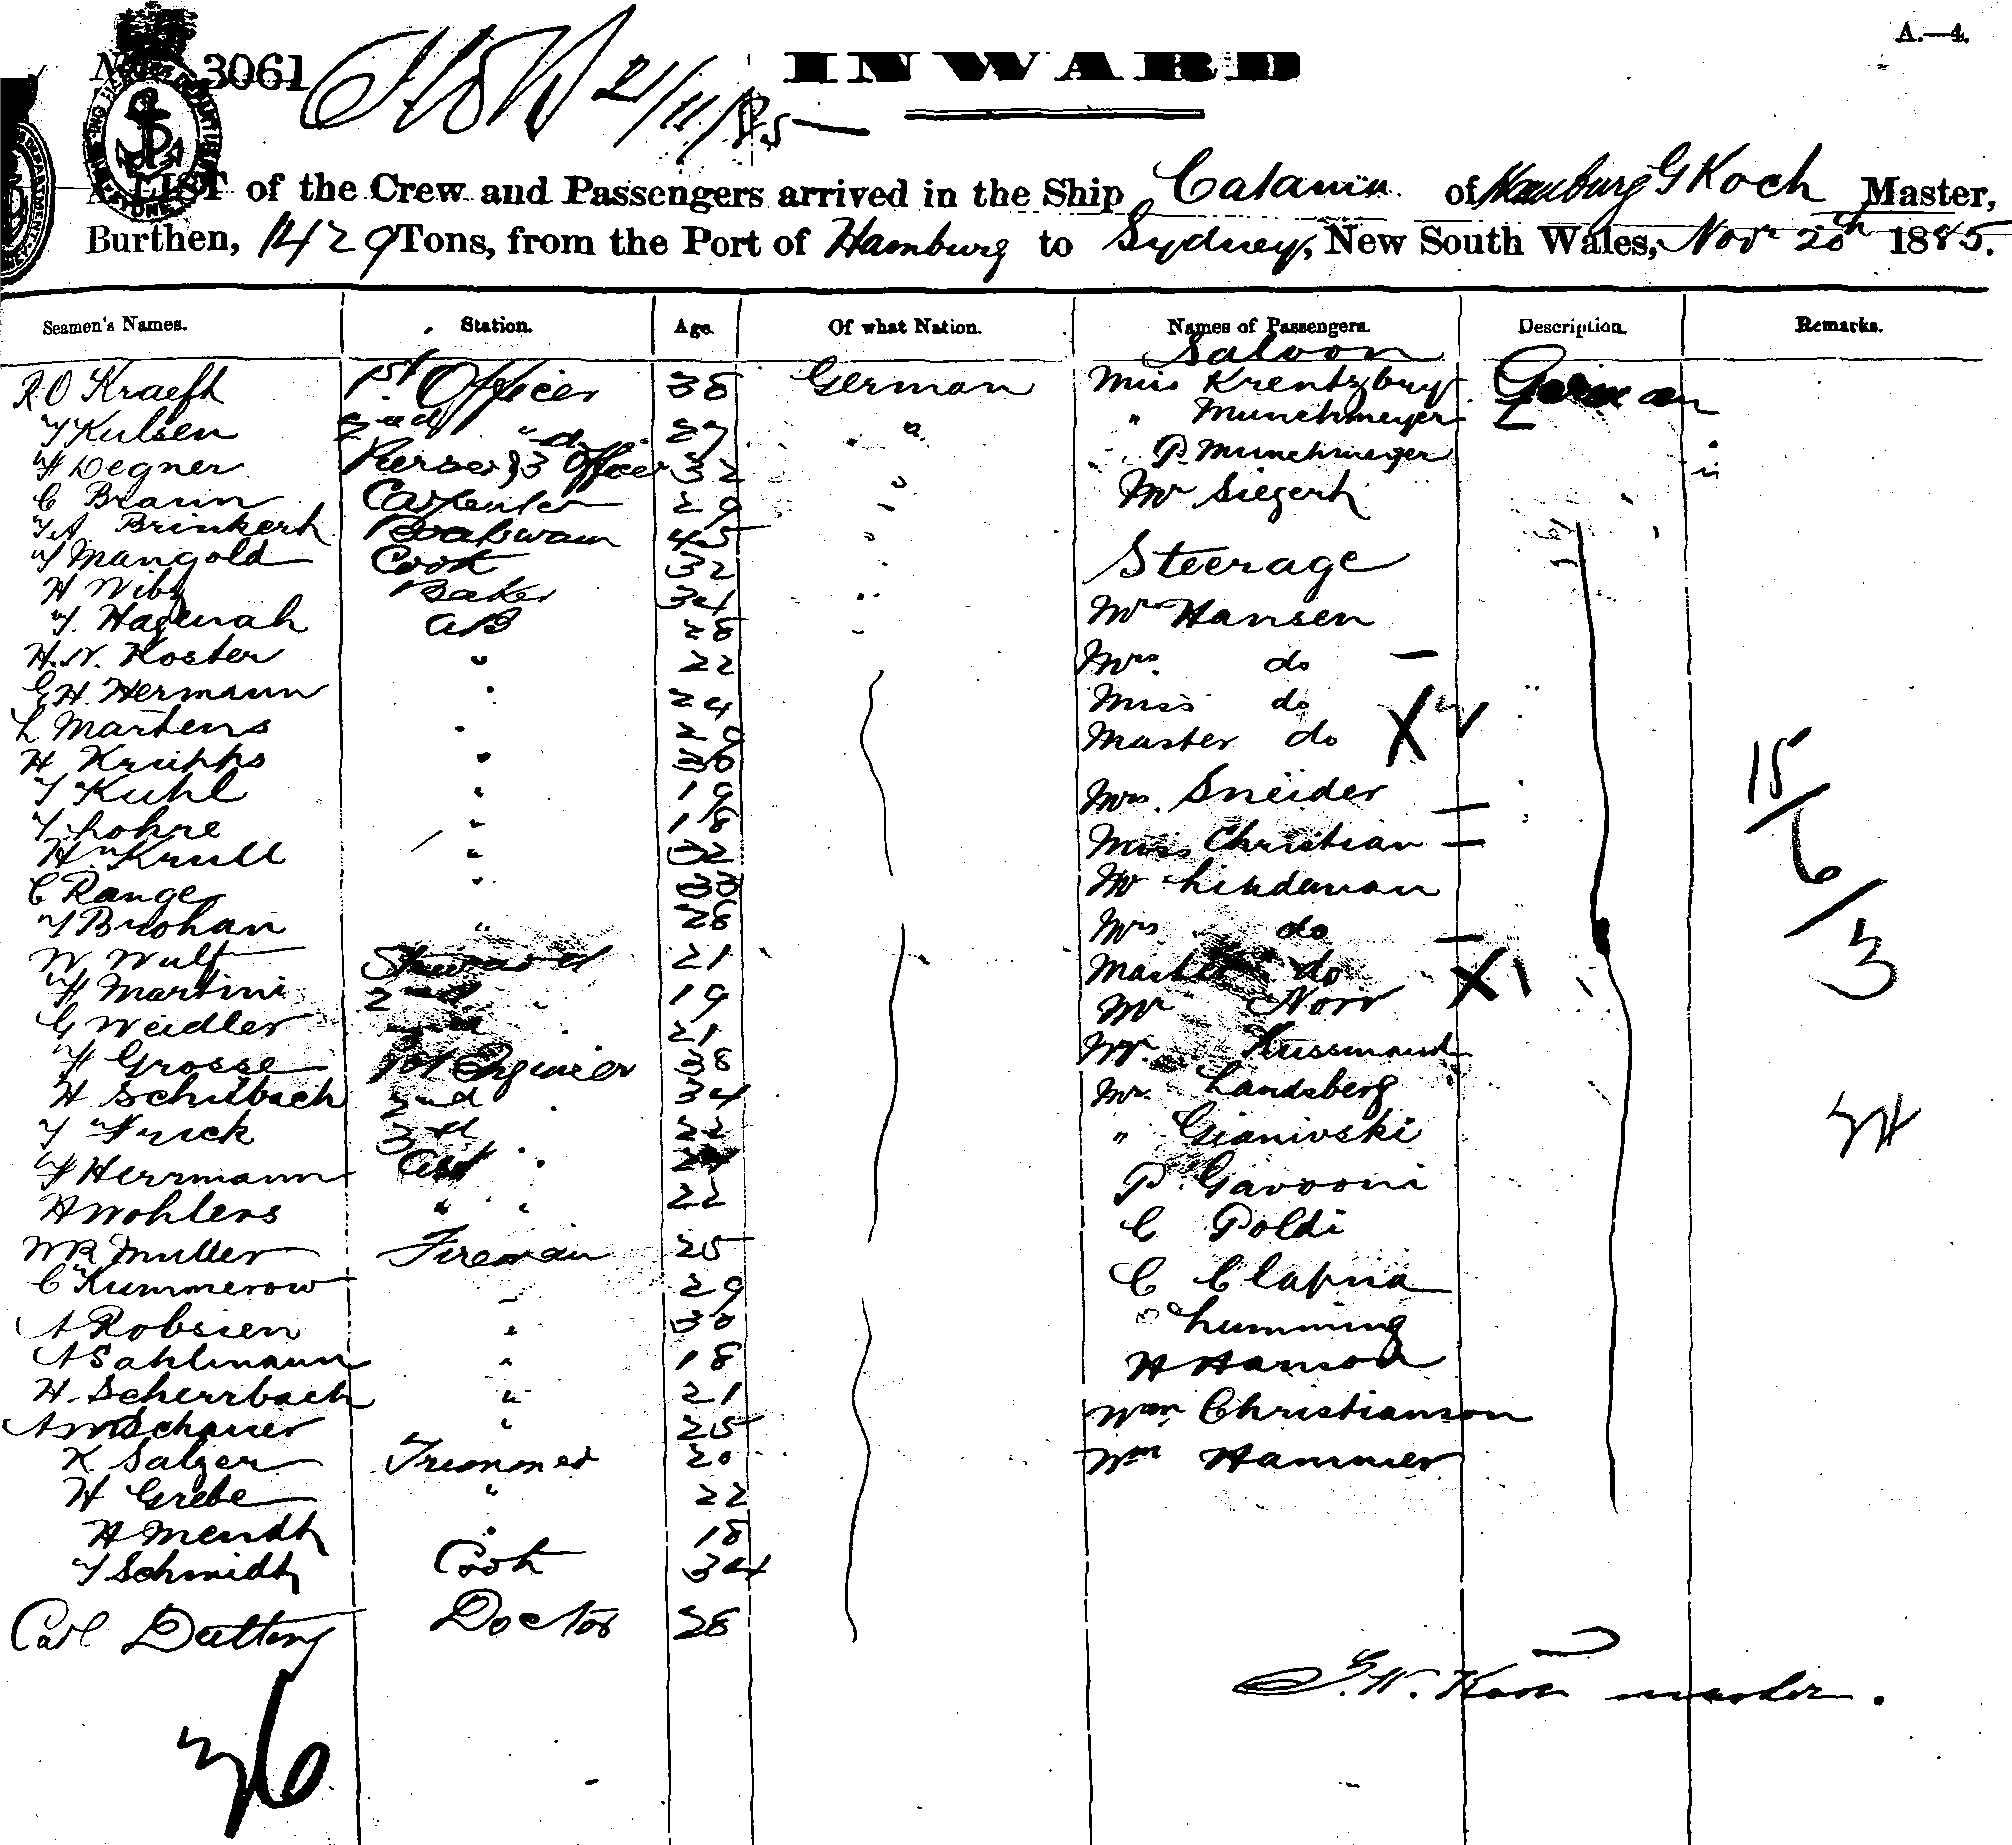 A.—4.
No 3061 21/11/85 INWARD
A LIST of the Crew and Passengers arrived in the Ship Catania of Hamburg G Koch Master,
Burthen, 1429 Tons, from the Port of Hamburg to Sydney, New South Wales, Novr 20th 1885.
Seamen's Names. Station. Age. Of what Nation. Names of Passengers. Description. Remarks.
Saloon
R O Kraeft 1st Officer 38 German Miss Krentzburg German
Kulsen 2nd " do 27 " " Munchmeyer
Degner Purser & 3 Officer 32 " P. Munchmeyer "
C Braun Carpenter 29 " Mr Siegert
Brinkert Boatswain 45
Mangold Cook 32 Steerage
H Wiby Baker 34
Hagenah AB 28 Mr Hansen
H. N. Koster " 22 Mrs. do —
G H. Hermann " 24 Miss do
L Martens " 29 Master do X
H Krupps "
Kuhl " 19 Mrs. Sneider — 15/6/3
Lohre " 18
Hn Krull " 32 Miss Christian —
C Range " Mr Lindeman
Brohan " 28 Mrs do —
W Wulf Steward 21 Master do X 1
Martini 2nd " 19 Mr Norr
G Weidler 21
Grosse 1st Enginier 38 Mr. Kussmaul
H Schilbach 2nd " 34 Mr. Landsberg
Frick 3rd " 22 " Gianivski 34
Herrmann Asst " P. Gavooni
H Wohlers " " 22 C Poldi
W R Muller Fireman 25
C Kummerow " 29 C Clapua
A Robsien " 30 " Lumming
A Sahlmann " 18 H Hanson
H. Scherrbach " 21
A W Schauer " 25 Wm Christianson
K Salzer Trimmer 20 Wm Hammer
H Grebe " 22
H Mendt " 18
Schmidt Cook 34
Carl Dutting Doctor 28
G. W. Koch master.
36